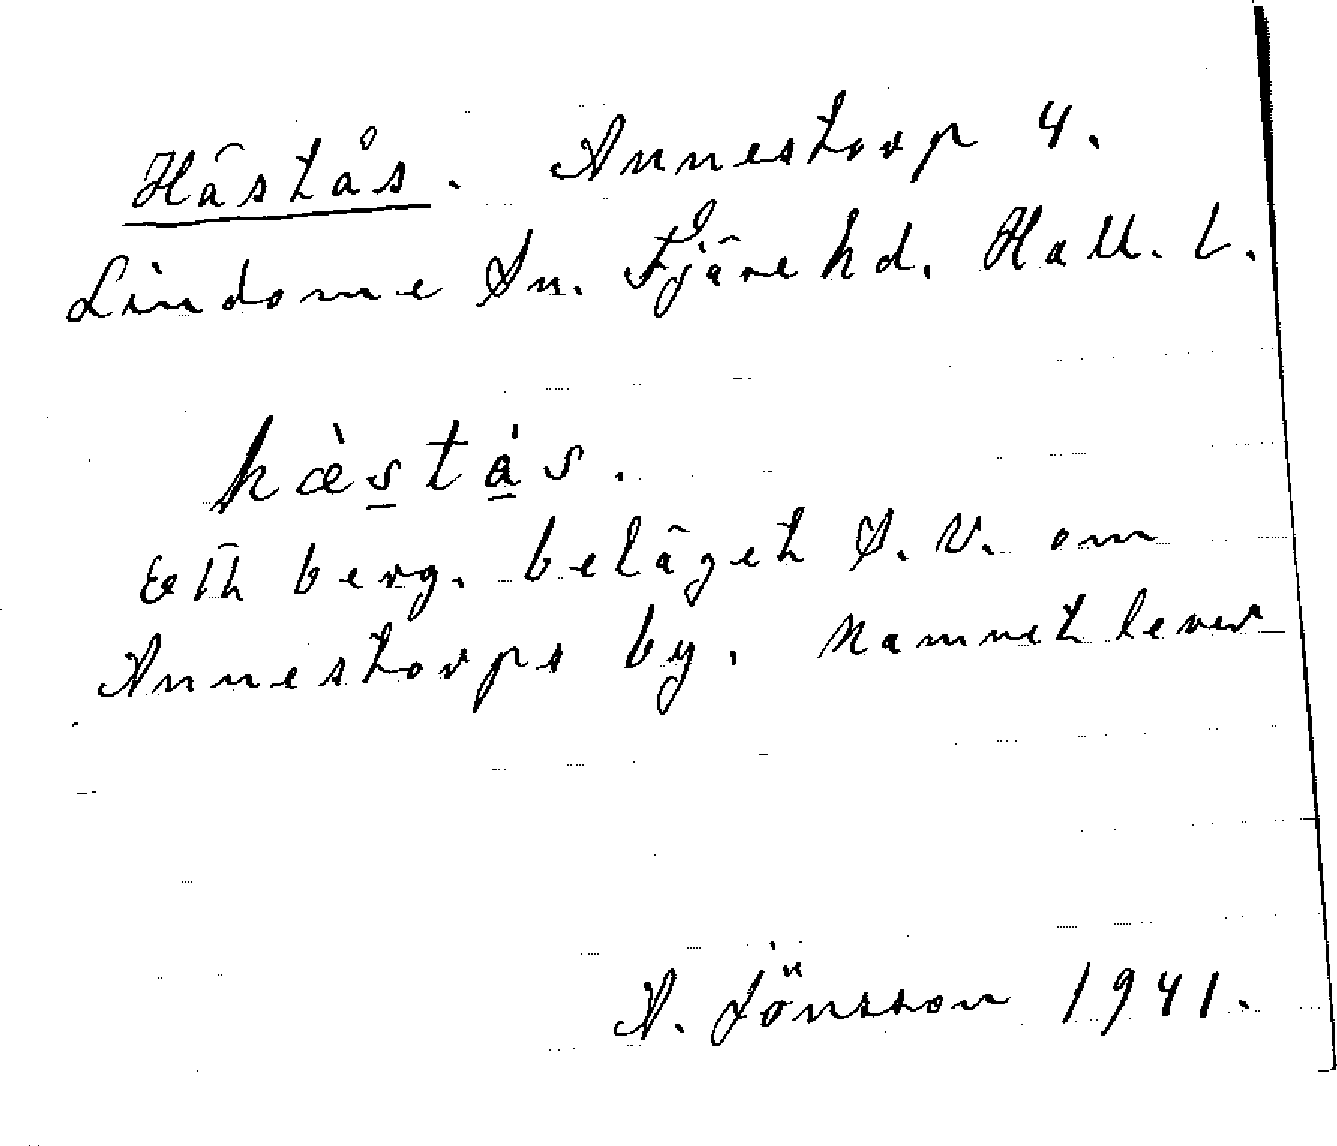 Hästås. Annestorp 4.
Lindome Sn. Fjäre hd. Hall. l.
hæ̀stás.
Ett berg. beläget S. V. om
Annestorps by. Namnet lever
A. Jönsson 1941.